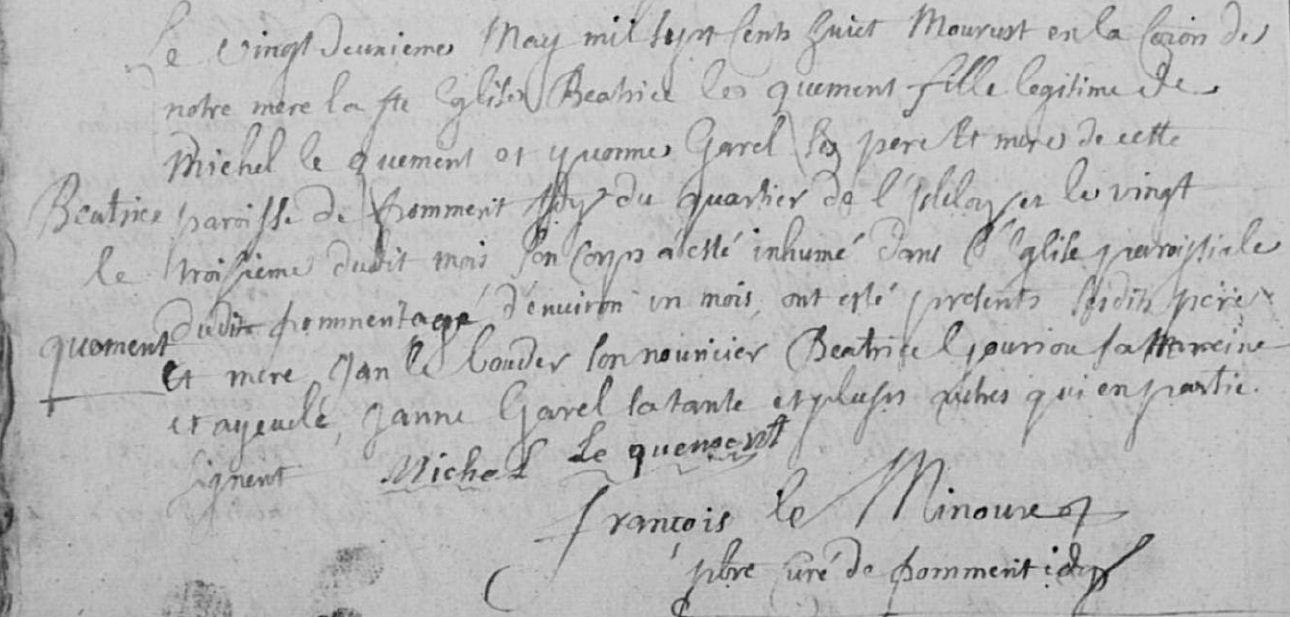 Le vingt deuxieme May mil sept cents huict Mourust en la Coion de
notre mere la ste Eglise Beatrice le quement fille legitime de
Michel le quement et yvonne Garel ses pere Et mere de cette
Beatrice paroisse de pommerit du quartier de le vingt
le troisieme dudit mois son corps a esté inhumé dans l'Eglise paroissiale
dudit pommerit agé d'environ un mois, ont esté presents sesdits pere
quement
Et mere, Jan le bouder son nouricier Beatrice sa Mareine
et ayeule, Janne Garel sa tante et plusrs autres qui en partie
signent Michel Le quement
françois le Minoux
pbre curé de pommerit